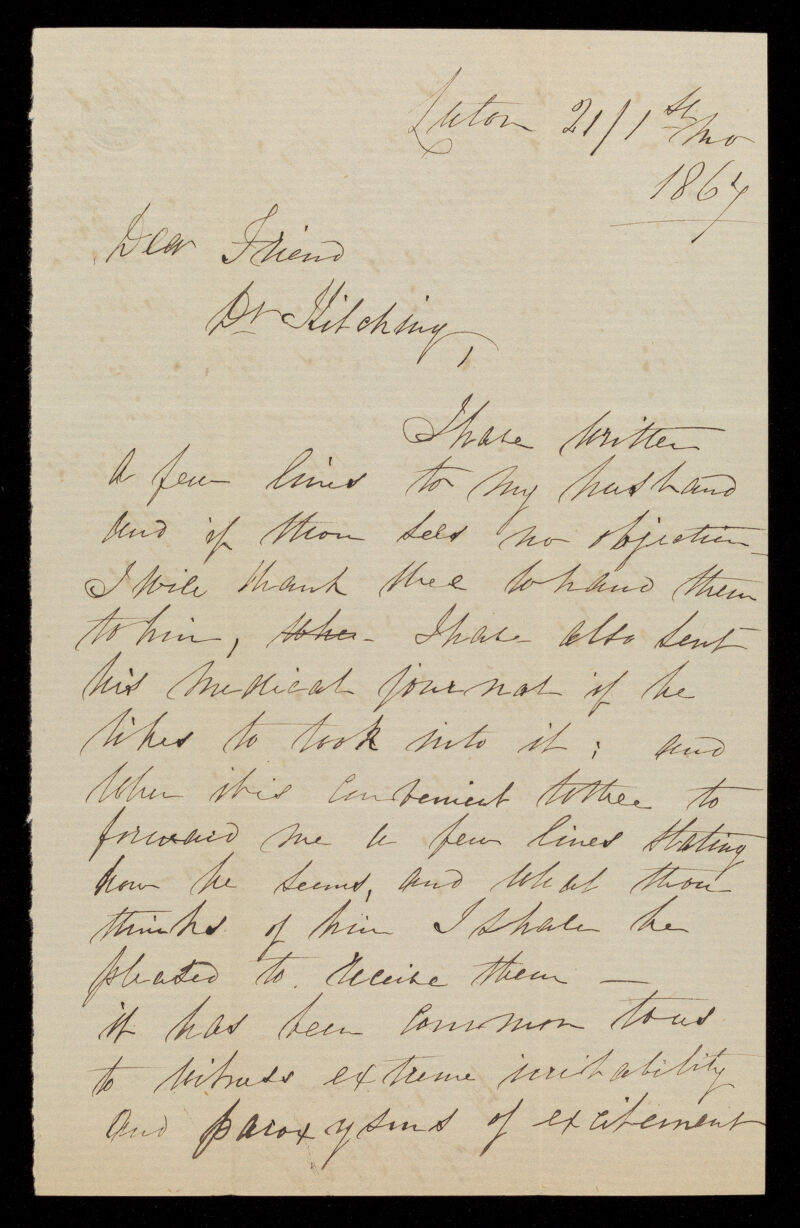 Luton 21/1st/mo
1867
Dear Friend
Dr Kitching,
I have written
a few lines to my husband
and if thou sees no objection
I will thank thee to hand them
to him, I have also sent
his medical journal if he
likes to look into it; and
when it is convenient to thee to
forward me a few lines stating
how he seems, and what thou
thinks of him I shall be
pleased to receive them —
it has been common to us
to witness extreme irritability
and paroxysms of excitement